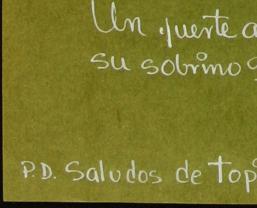 Un fuerte a
su sobrino
P.D. Saludos de Top